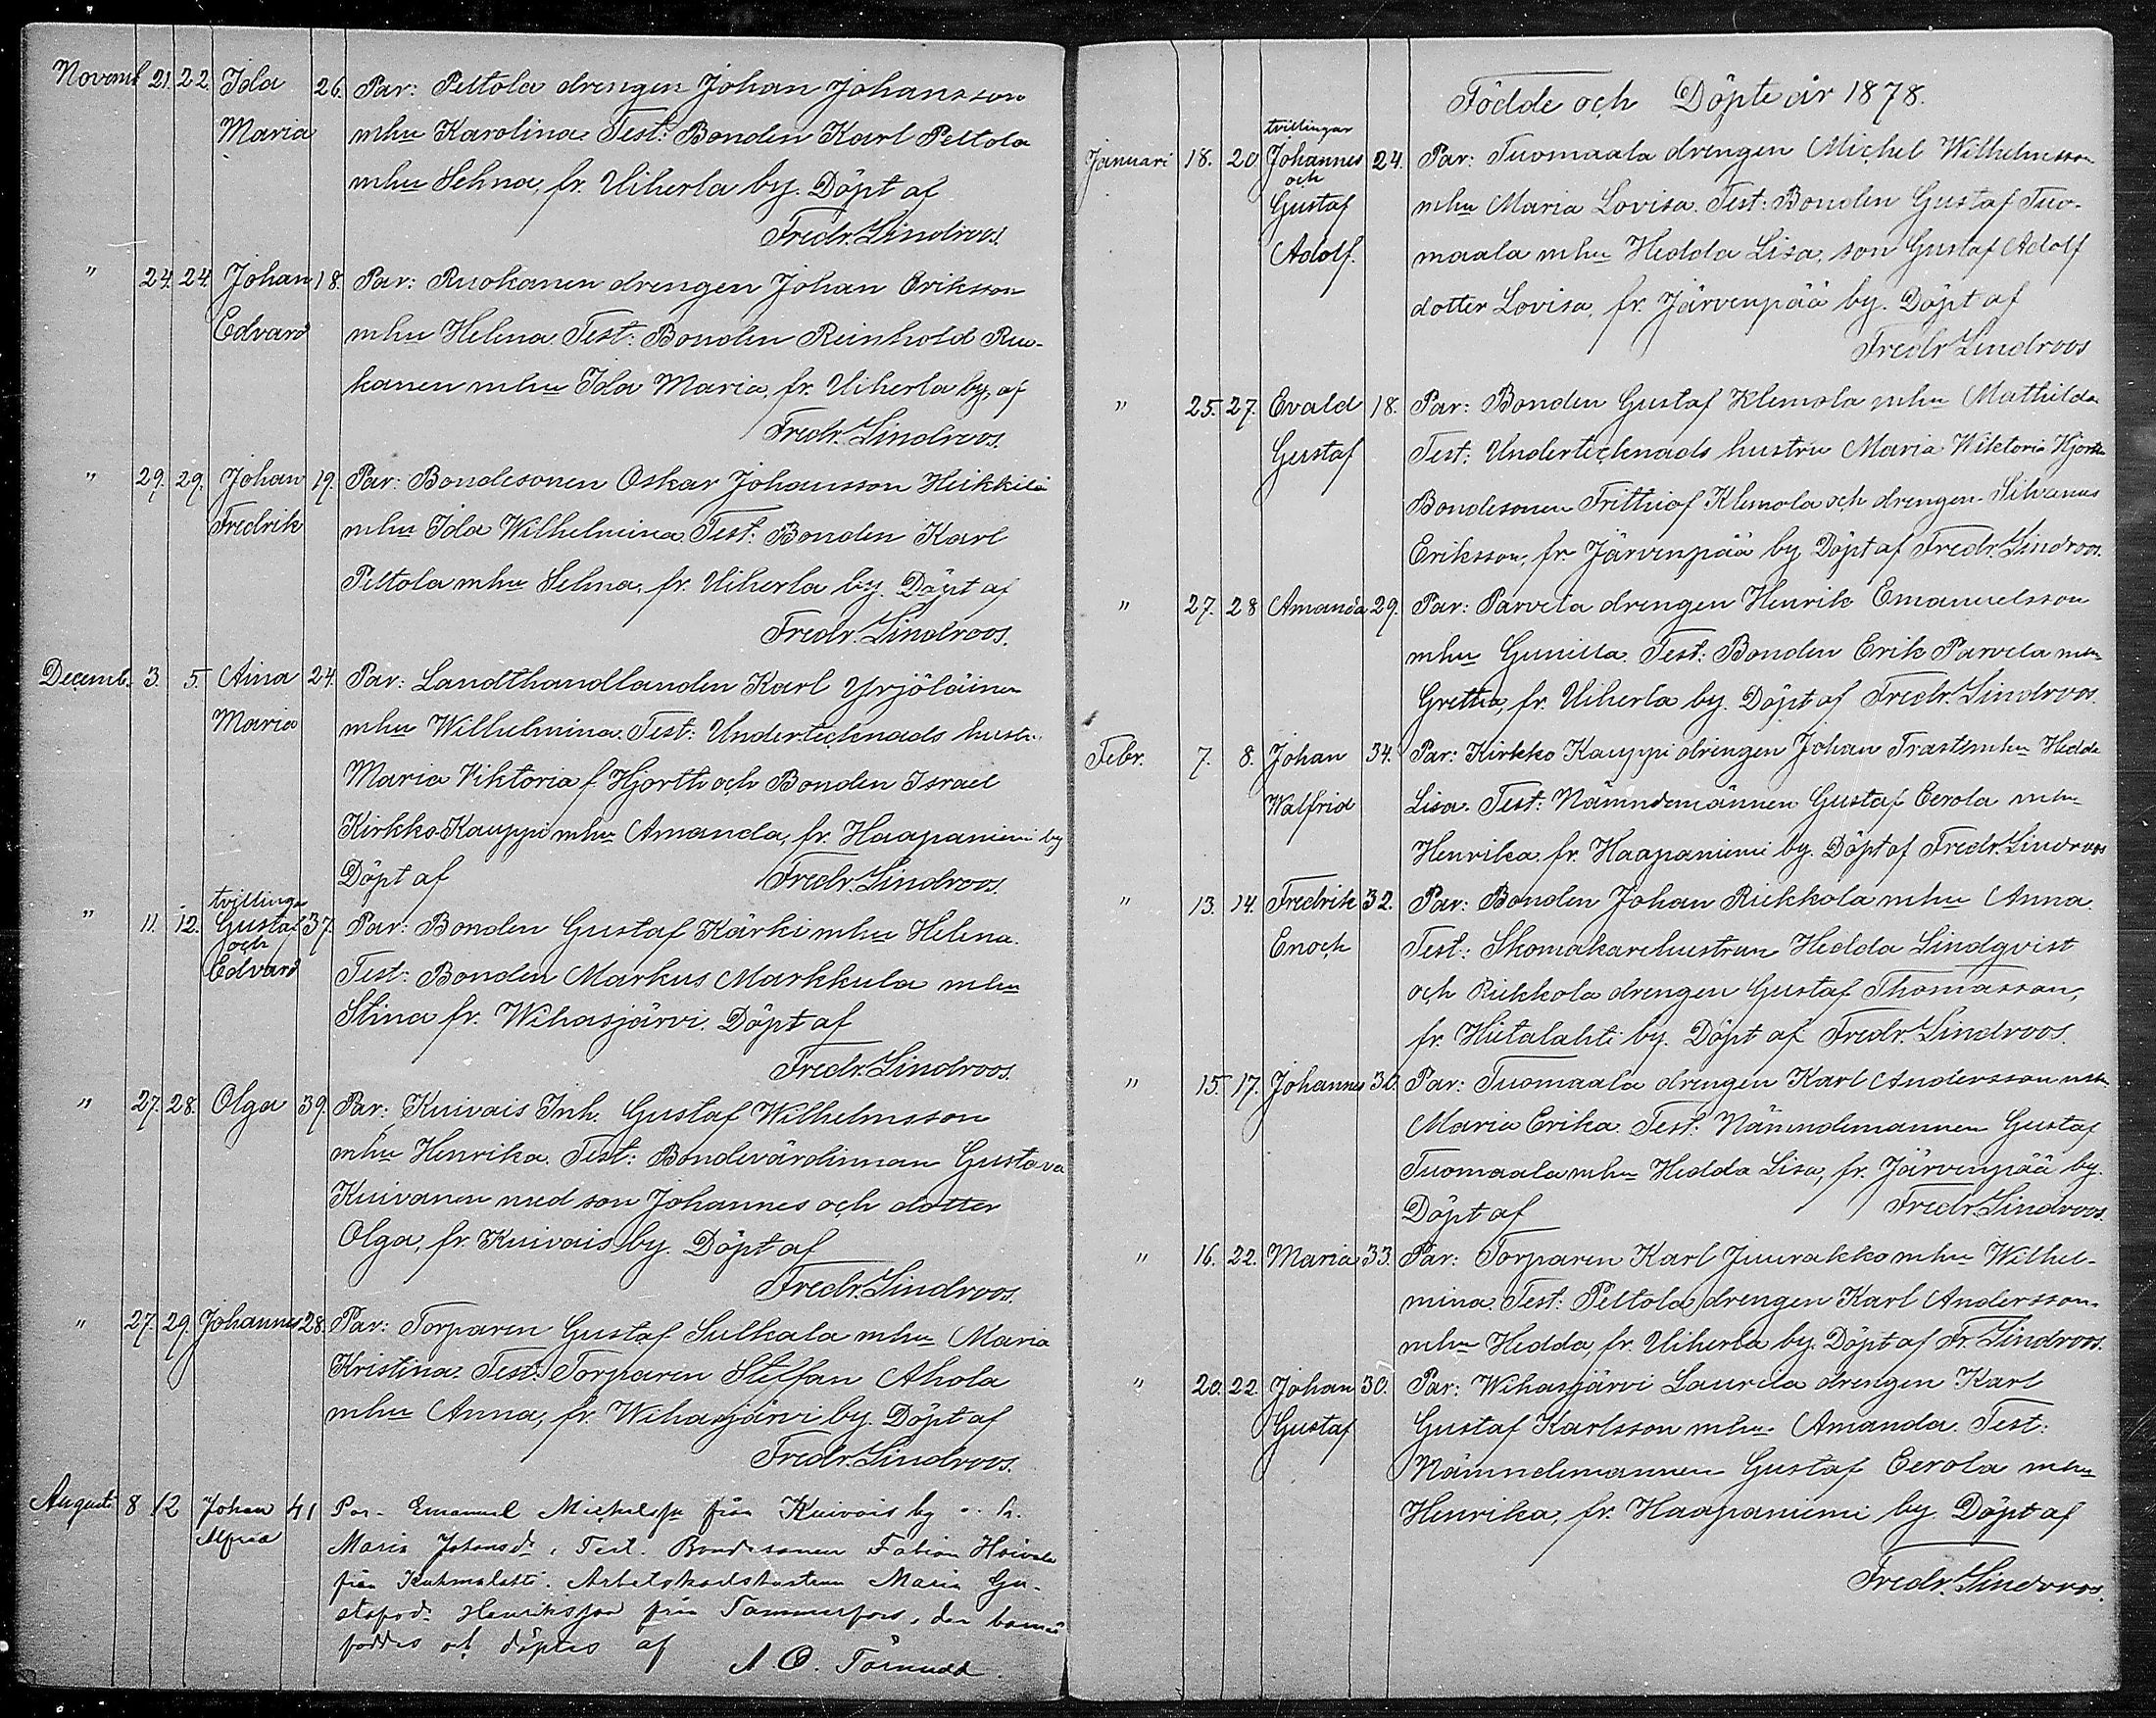 Novemb 21. 22. Ida 26. Par: Peltola drengen Johan Johansson
Maria mhu Karolina. Test: Bonden Karl Peltola
mhu Selma, fr. Uiherla by. Döpt af
Fredr. Lindroos.
" 24. 24. Johan 18. Par: Ruokanen drengen Johan Eriksson
Edvard mhu Helena Test: Bonden Reinhold Ruo-
kanen mhu Ida Maria, fr. Uiherla by, af
Fredr. Lindroos.
" 29. 29. Johan 19. Par: Bondesonen Oskar Johansson Heikkilä
Fredrik mhu Ida Wilhelmina. Test: Bonden Karl
Peltola mhu Selma, fr. Uiherla by. Döpt af
Fredr. Lindroos.
Decemb. 3. 5. Aina 24. Par: Landthandlanden Karl Yrjöläinen
Maria mhu Wilhelmina. Test: Undertecknads hustr.
Maria Viktoria f. Hjorth och Bonden Israel
Kirkko-Kauppi mhu Amanda, fr. Haapaniemi by
Döpt af Fredr. Lindroos.
tvillingar
" 11. 12. Gustaf 37. Par: Bonden Gustaf Kärki mhu Helena.
och
Edvard Test: Bonden Markus Markkula mhu
Stina fr. Wihasjärvi. Döpt af
Fredr. Lindroos.
" 27. 28. Olga 39. Par: Kuivais Inh. Gustaf Wilhelmsson
mhu Henrika. Test: Bondevärdinnan Gustava
Kuivanen med son Johannes och dotter
Olga, fr. Kuivais by. Döpt af
Fredr. Lindroos.
" 27. 29. Johannes 28. Par: Torparen Gustaf Sulkala mhu Maria
Kristina. Test: Torparen Steffan Ahola
mhu Anna, fr. Wihasjärvi by. Döpt af
Fredr. Lindroos.
Augusti 8 12 Johan 41 Par. Emanuel Michelss. från Kuivais by o. h.
Alfred Maria Johansd. Test. Bondesonen Fabian
från Kuhmalahti. Arbetskarlshustrun Maria Gu-
stafsd. Henriksson från Tammerfors, der barnet
föddes och döptes af A. O. Törnudd.
Födde och Döpte år 1878.
tvillingar
Januari 18. 20 Johannes 24. Par: Tuomaala drengen Michel Wilhelmsson
och
Gustaf mhu Maria Lovisa. Test: Bonden Gustaf Tuo-
Adolf. maala mhu Hedda Lisa, son Gustaf Adolf
dotter Lovisa, fr. Järvenpää by. Döpt af
Fredr Lindroos
" 25. 27. Evald 18. Par: Bonden Gustaf Klemola mhu Mathilda
Gustaf Test: Undertecknads hustru Maria Wiktoria Hjorth
Bondesonen Frithiof Klemola och drengen Silvanus
Eriksson, fr. Järvenpää by Döpt af Fredr. Lindroos.
" 27. 28 Amanda 29. Par: Parvela drengen Henrik Emanuelsson
mhu Gunilla. Test: Bonden Erik Parvela mhu
Gretha, fr. Uiherla by. Döpt af Fredr. Lindroos.
Febr. 7. 8. Johan 34. Par: Kirkko Kauppi drengen Johan Trast mhu Hedda
Walfrid Lisa. Test: Nämndemannen Gustaf Eerola mhu
Henrika, fr. Haapaniemi by. Döpt af Fredr. Lindroos
" 13. 14. Fredrik 32. Par: Bonden Johan Riekkola mhu Anna.
Enoch Test: Skomakarehustrun Hedda Lindqvist
och Riekkola drengen Gustaf Thomasson,
fr. Hietalahti by. Döpt af Fredr. Lindroos.
" 15. 17. Johannes 30. Par: Tuomaala drengen Karl Andersson mhu
Maria Erika. Test: Nämndemannen Gustaf
Tuomaala mhu Hedda Lisa, fr. Järvenpää by.
Döpt af Fredr. Lindroos.
" 16. 22. Maria 33. Par: Torparen Karl Juurakko mhu Wilhel-
mina. Test: Peltola drengen Karl Andersson
mhu Hedda, fr. Uiherla by. Döpt af Fr. Lindroos.
" 20. 22. Johan 30. Par: Wihasjärvi Laurila drengen Karl
Gustaf Gustaf Karlsson mhu Amanda. Test:
Nämndemannen Gustaf Eerola mhu
Henrika, fr. Haapaniemi by Döpt af
Fredr. Lindroos.